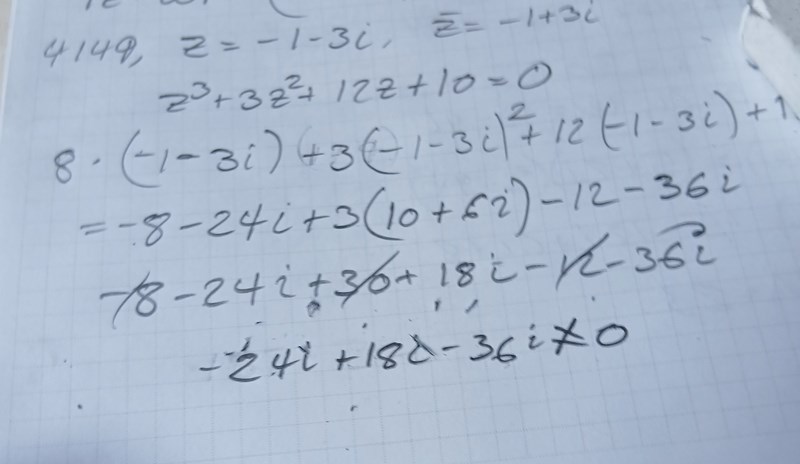 4149, z = -1-3i, z̄ = -1+3i
z³+3z²+12z+10=0
8·(-1-3i)+3(-1-3i)²+12(-1-3i)+1
=-8-24i+3(10+6i)-12-36i
-8-24i+30+18i-12-36i
-24i+18i-36i≠0